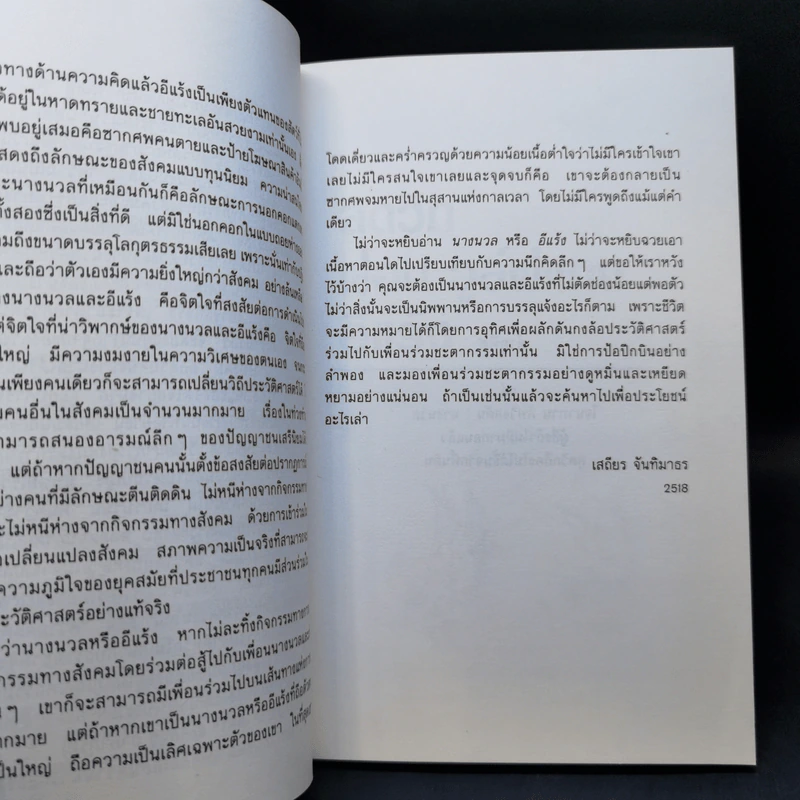 ทางด้านความคิดแล้วอีแร้งเป็นเพียงตัวแทนของสัตว์ที่
ด้อยู่ในหาดทรายและชายทะเลอันสวยงามเท่านั้นเอง
พบอยู่เสมอคือซากศพคนตายและป้ายโฆษณาสินค้า
สดงถึงลักษณะของสังคมแบบทุนนิยม ความน่าสนใจ
ะนางนวลที่เหมือนกันก็คือลักษณะการนอกคอกแตก
ั้งสองซึ่งเป็นสิ่งที่ดี แต่มิใช่นอกคอกในแบบถอยห่าง
มถึงขนาดบรรลุโลกุตรธรรมเสียเลย เพราะนั่นเท่ากับ
และถือว่าตัวเองมีความยิ่งใหญ่กว่าสังคม อย่างล้นเหลือ
งนางนวลและอีแร้ง คือจิตใจที่สงสัยต่อการดำเนิน
ต่จิตใจที่น่าวิพากษ์ของนางนวลและอีแร้งคือ จิตใจที่
ใหญ่ มีความงมงายในความวิเศษของตนเอง จน
นเพียงคนเดียวก็จะสามารถเปลี่ยนวิถีประวัติศาสตร์ได้
มคนอื่นในสังคมเป็นจำนวนมากมาย เรื่องในท่วงทำ
ามารถสนองอารมณ์ลึกๆ ของปัญญาชนเสรีนิยม
แต่ถ้าหากปัญญาชนคนนั้นตั้งข้อสงสัยต่อปรากฏการณ์
อย่างคนที่มีลักษณะตีนติดดิน ไม่หนีห่างจากกิจกรรม
ะไม่หนีห่างจากกิจกรรมทางสังคม ด้วยการเข้าร่วม
าเปลี่ยนแปลงสังคม สภาพความเป็นจริงที่สามารถ
ความภูมิใจของยุคสมัยที่ประชาชนทุกคนมีส่วนร่วม
ะวัติศาสตร์อย่างแท้จริง
ว่านางนวลหรืออีแร้ง หากไม่ละทิ้งกิจกรรมทาง
กรรมทางสังคมโดยร่วมต่อสู้ไปกับเพื่อนนางนวลและ
นๆ เขาก็จะสามารถมีเพื่อนร่วมไปบนเส้นทางแห่ง
ากมาย แต่ถ้าหากเขาเป็นนางนวลหรืออีแร้งที่ถือตัว
ป็นใหญ่ ถือความเป็นเลิศเฉพาะตัวของเขา ในที่สุด
โดดเดี่ยวและคร่ำครวญด้วยความน้อยเนื้อต่ำใจว่าไม่มีใครเข้าใจเขา
เลยไม่มีใครสนใจเขาเลยและจุดจบก็คือ เขาจะต้องกลายเป็น
ซากศพจมหายไปในสุสานแห่งกาลเวลา โดยไม่มีใครพูดถึงแม้แต่คำ
เดียว
ไม่ว่าจะหยิบอ่าน นางนวล หรือ อีแร้ง ไม่ว่าจะหยิบฉวยเอา
เนื้อหาตอนใดไปเปรียบเทียบกับความนึกคิดลึกๆ แต่ขอให้เราหวัง
ไว้บ้างว่า คุณจะต้องเป็นนางนวลและอีแร้งที่ไม่ตัดช่องน้อยแต่พอตัว
ไม่ว่าสิ่งนั้นจะเป็นนิพพานหรือการบรรลุแจ้งอะไรก็ตาม เพราะชีวิต
จะมีความหมายได้ก็โดยการอุทิศเพื่อผลักดันกงล้อประวัติศาสตร์
ร่วมไปกับเพื่อนร่วมชะตากรรมเท่านั้น มิใช่การป้อปีกบินอย่าง
ลำพอง และมองเพื่อนร่วมชะตากรรมอย่างดูหมิ่นและเหยียด
หยามอย่างแน่นอน ถ้าเป็นเช่นนั้นแล้วจะค้นหาไปเพื่อประโยชน์
อะไรเล่า
เสถียร จันทิมาธร
2518